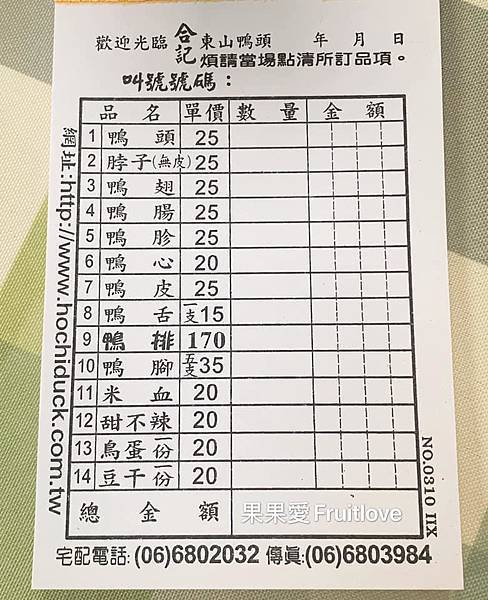 歡迎光臨 合記 東山鴨頭 年 月 日
煩請當場點清所訂品項。
叫號號碼：
品名 單價 數量 金額
1 鴨頭 25
2 脖子(無皮) 25
3 鴨翅 25
4 鴨腸 25
5 鴨胗 25
6 鴨心 20
7 鴨皮 25
8 鴨舌 一支15
9 鴨排 170
10 鴨腳 五支35
11 米血 20
12 甜不辣 20
13 鳥蛋一份 20
14 豆干一份 20
總金額
網址:http://www.hochiduck.com.tw
NO.0310 IIX
果果愛 Fruitlove
宅配電話:(06)6802032 傳真:(06)6803984